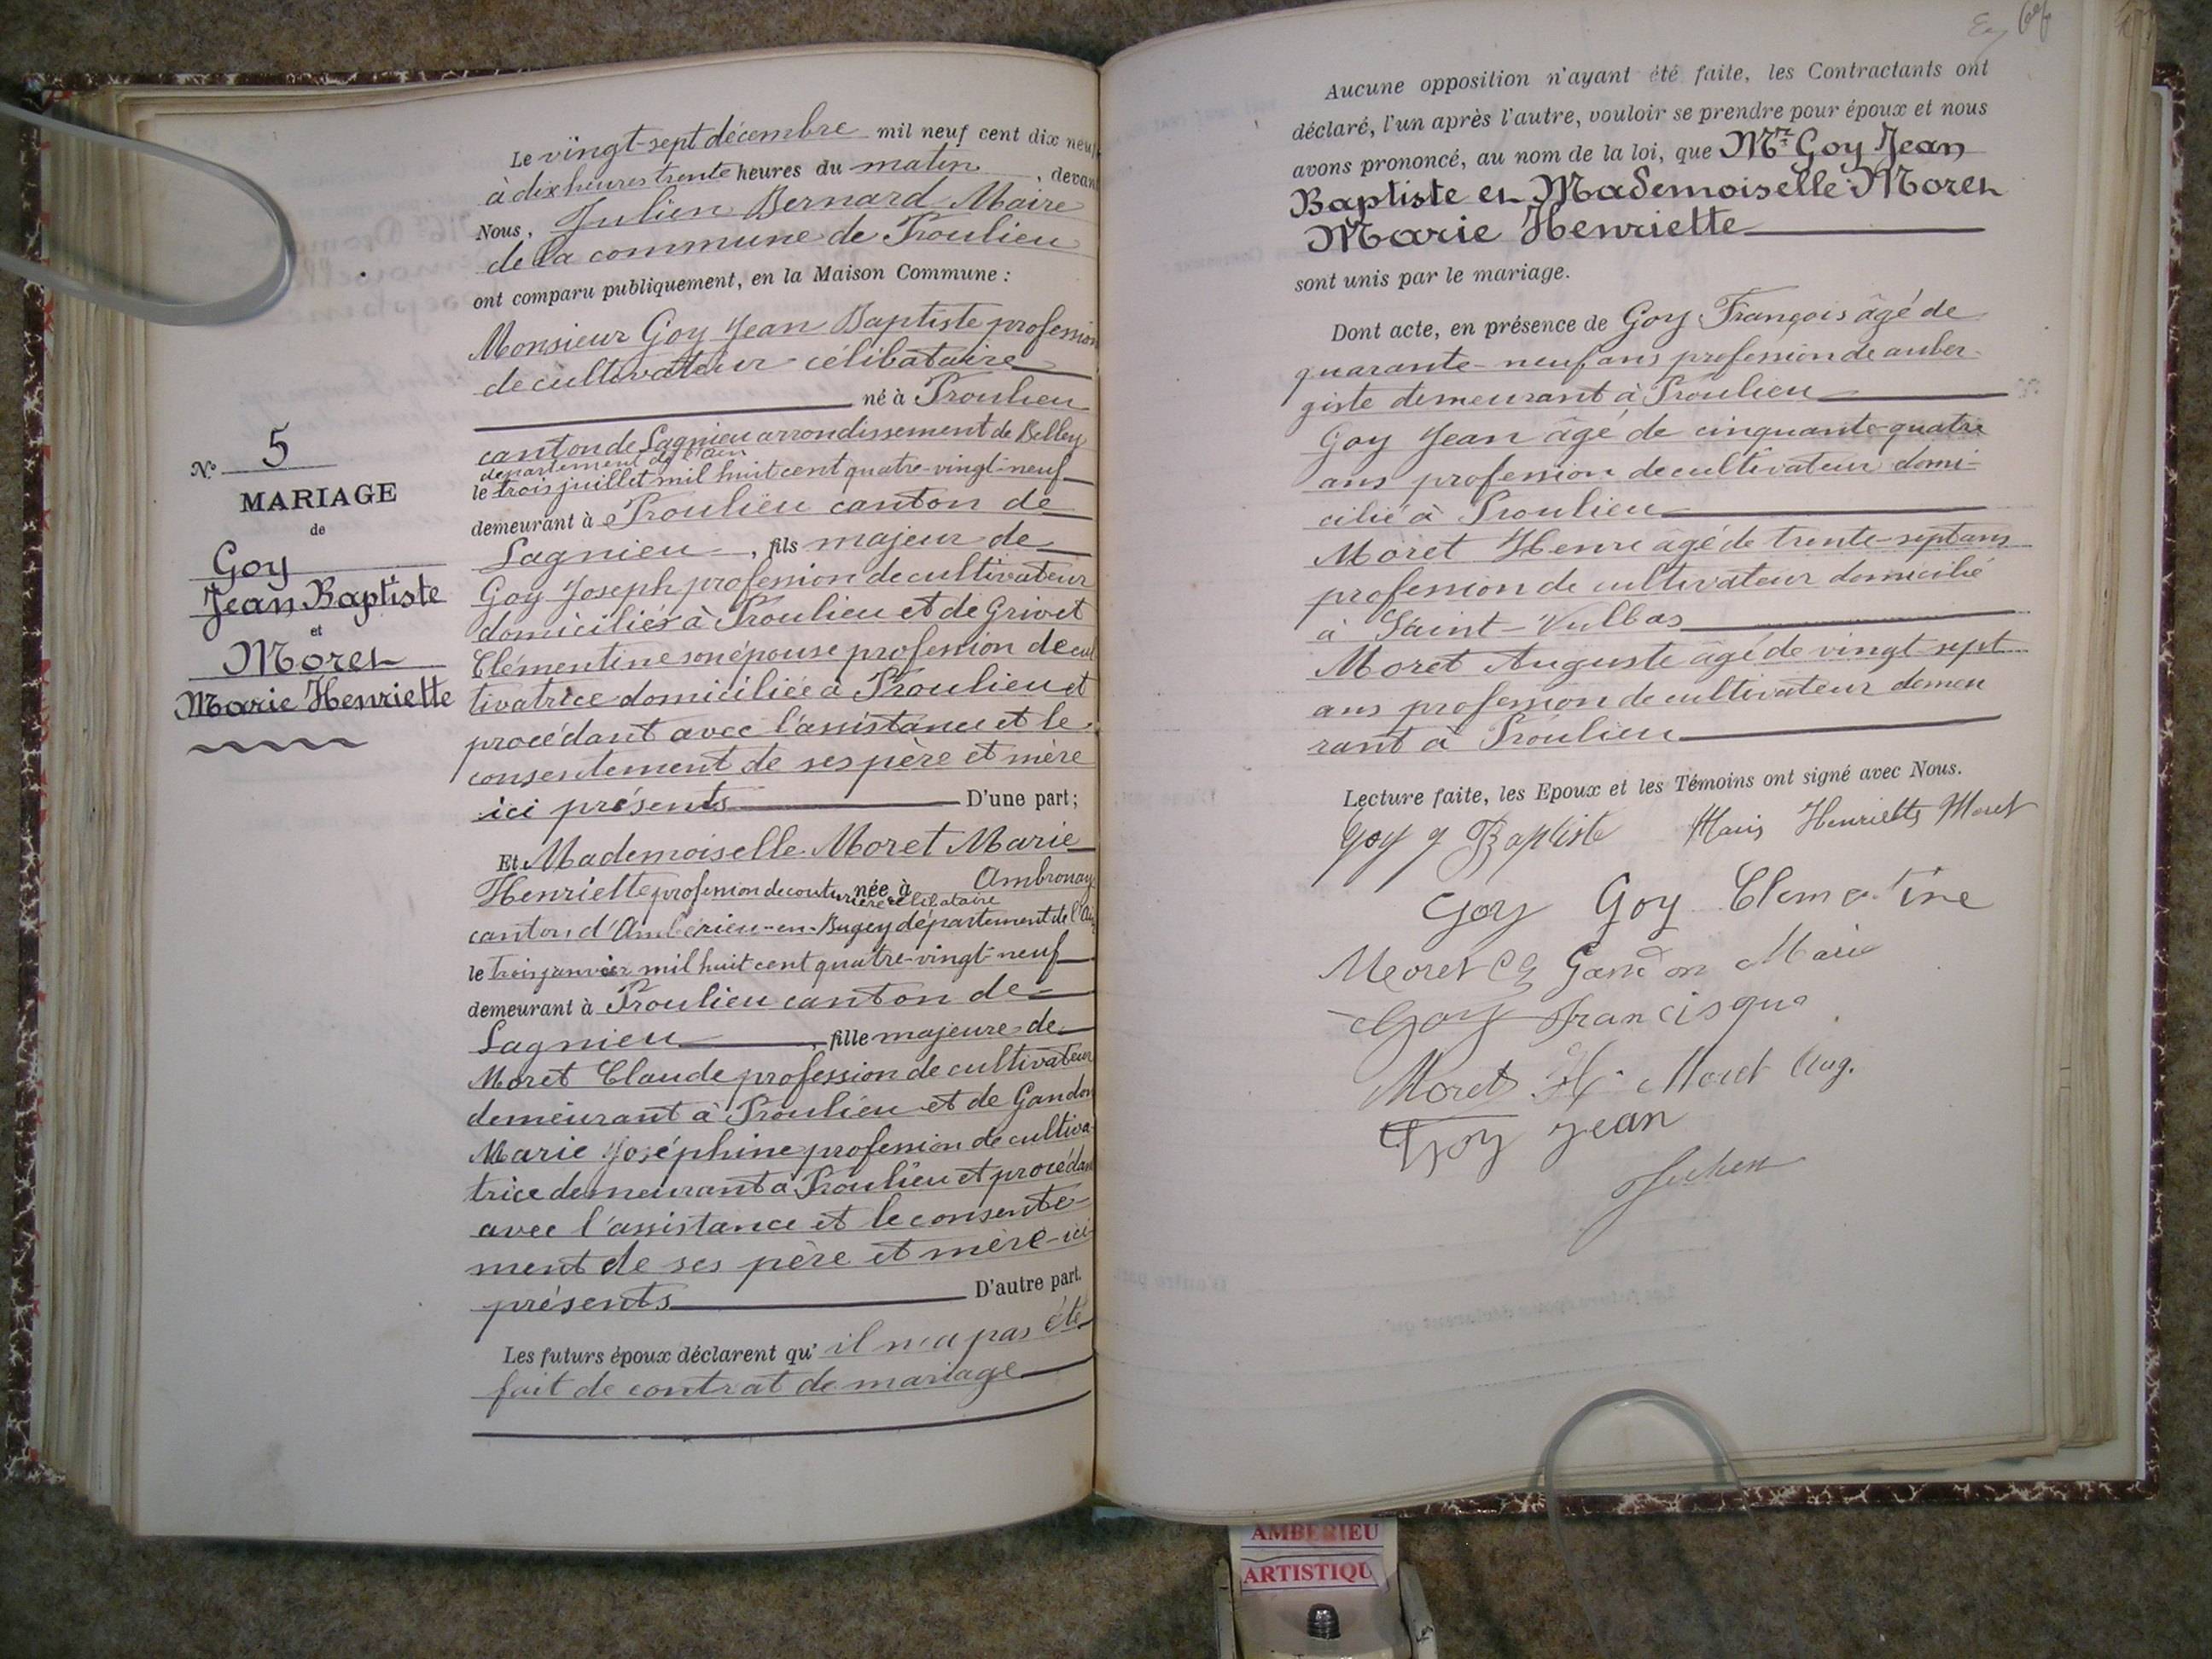 Le vingt-sept décembre mil neuf cent dix neuf
à dix heures trente heures du matin, devant
Nous, Julien Bernard Maire
de la commune de Proulieu
ont comparu publiquement, en la Maison Commune :
Monsieur Goy Jean Baptiste profession
de cultivateur célibataire
né à Proulieu
canton de Lagnieu arrondissement de Belley
département de l'Ain
le trois juillet mil huit cent quatre-vingt-neuf
demeurant à Proulieu canton de
Lagnieu, fils majeur de
Goy Joseph profession de cultivateur
domiciliés à Proulieu et de Grivet
Clémentine son épouse profession de cul
tivatrice domiciliée à Proulieu et
procédant avec l'assistance et le
consentement de ses père et mère
ici présents D'une part;
Et Mademoiselle Moret Marie
Henriette profession de couturière célibataire née à Ambronay
canton d'Ambérieu-en-Bugey département de l'Ain
le trois janvier mil huit cent quatre-vingt-neuf
demeurant à Proulieu canton de
Lagnieu, fille majeure de
Moret Claude profession de cultivateur
demeurant à Proulieu et de Gandon
Marie Joséphine profession de cultiva
trice demeurant à Proulieu et procédant
avec l'assistance et le consente
ment de ses père et mère ici
présents D'autre part.
Les futurs époux déclarent qu'il n'a pas été
fait de contrat de mariage
N° 5
MARIAGE
de
Goy
Jean Baptiste
et
Moret
Marie Henriette
Aucune opposition n'ayant été faite, les Contractants ont
déclaré, l'un après l'autre, vouloir se prendre pour époux et nous
avons prononcé, au nom de la loi, que Mr Goy Jean
Baptiste et Mademoiselle Moret
Marie Henriette
sont unis par le mariage.
Dont acte, en présence de Goy François âgé de
quarante-neuf ans profession de auber-
giste demeurant à Proulieu
Goy Jean âgé de cinquante-quatre
ans profession de cultivateur domi-
cilié à Proulieu
Moret Henri âgé de trente-sept ans
profession de cultivateur domicilié
à Saint-Vulbas
Moret Auguste âgé de vingt-sept
ans profession de cultivateur demeu
rant à Proulieu
Lecture faite, les Epoux et les Témoins ont signé avec Nous.
Goy J Baptiste Marie Henriette Moret
Goy Goy Clementine
Moret Cl Gandon Marie
Goy Francisque
Moret H. Moret Aug.
Goy Jean
Julien
AMBERIEU
ARTISTIQU